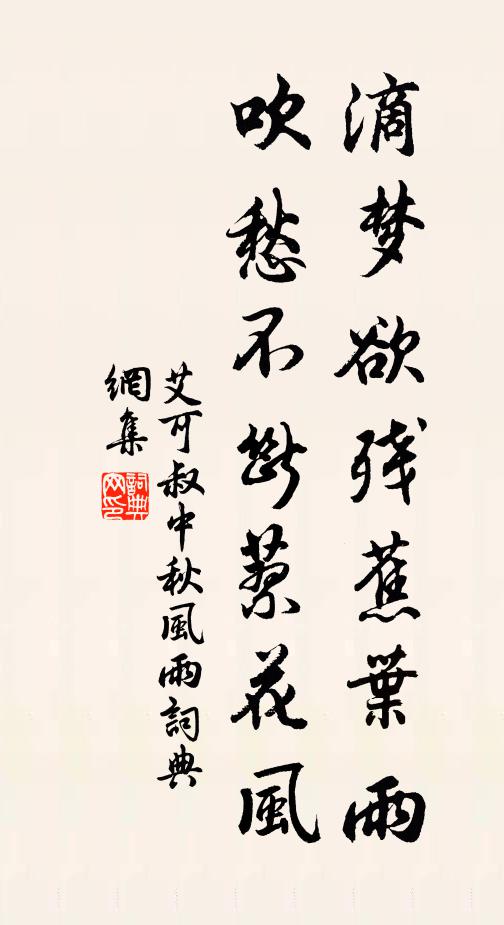 滴梦欲残蕉葉雨
吹愁不斷蓼花風
艾可叔中秋風雨詞典
網集
詞典
网印